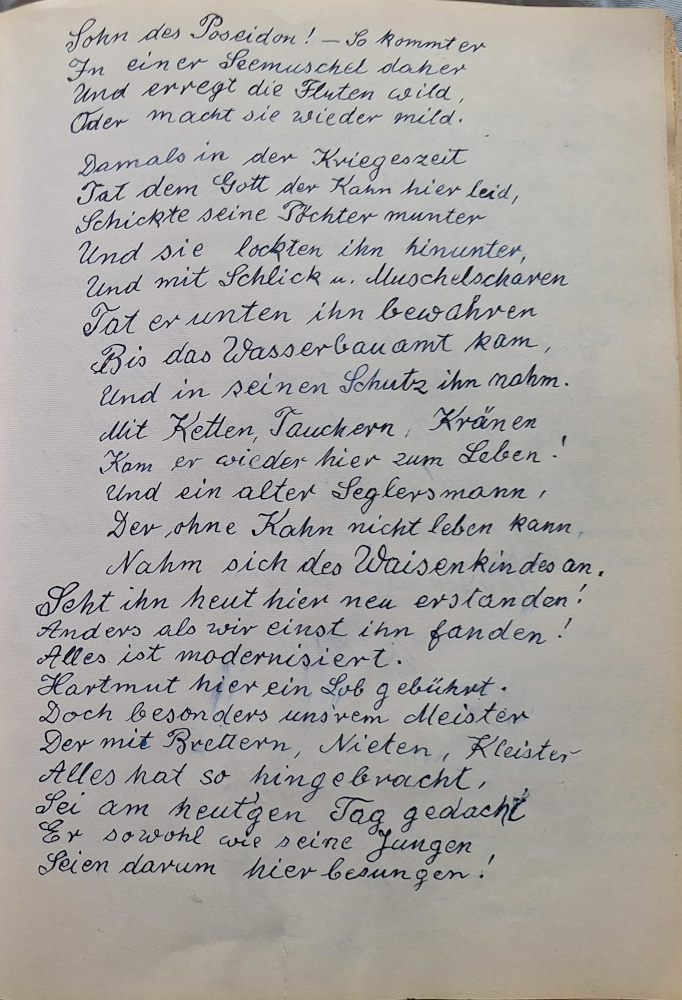 Sohn des Poseidon! – So kommt er
In einer Seemuschel daher
Und erregt die Fluten wild,
Oder macht sie wieder mild.
Damals in der Kriegeszeit
Tat dem Gott der Kahn hier leid,
Schickte seine Töchter munter
Und sie lockten ihn hinunter,
Und mit Schlick u. Muschelscharen
Tat er unten ihn bewahren
Bis das Wasserbauamt kam,
Und in seinen Schutz ihn nahm.
Mit Ketten, Tauchern, Kränen
Kam er wieder hier zum Leben!
Und ein alter Seglersmann,
Der ohne Kahn nicht leben kann,
Nahm sich des Waisenkindes an.
Seht ihn heut hier neu erstanden!
Anders als wir einst ihn fanden!
Alles ist modernisiert.
Hartmut hier ein Lob gebührt.
Doch besonders uns'rem Meister
Der mit Brettern, Nieten, Kleister
Alles hat so hingebracht,
Sei am heut'gen Tag gedacht
Er sowohl wie seine Jungen
Seien darum hier besungen!